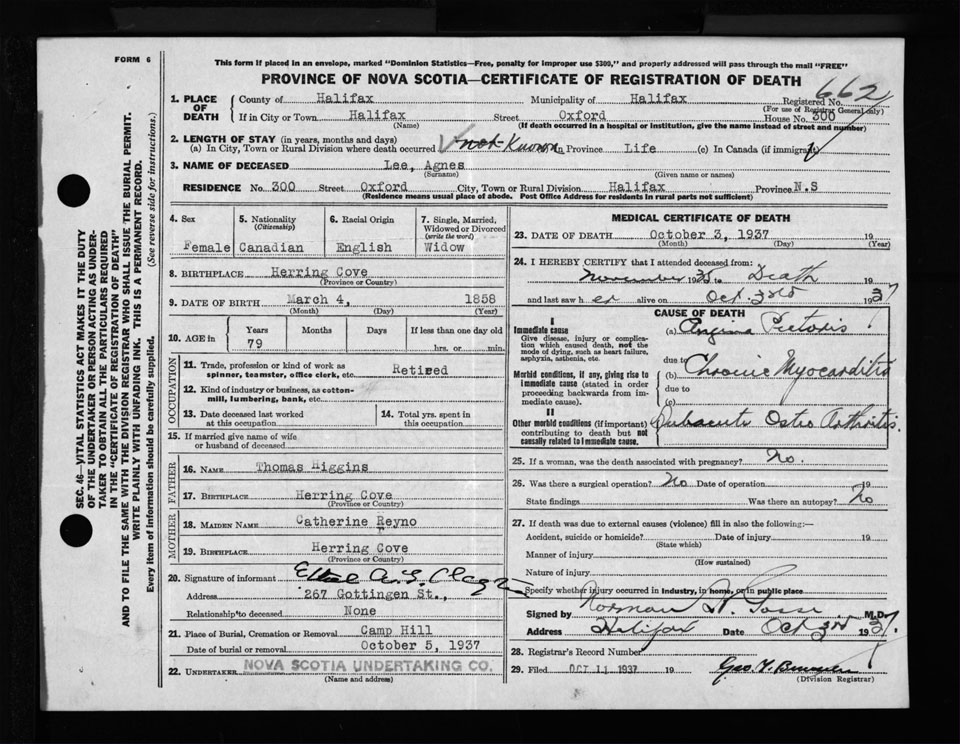 FORM 6
This form if placed in an envelope, marked "Dominion Statistics—Free, penalty for improper use $300," and properly addressed will pass through the mail "FREE"
PROVINCE OF NOVA SCOTIA—CERTIFICATE OF REGISTRATION OF DEATH
662
1. PLACE OF DEATH
County of Halifax Municipality of Halifax Registered No.
(For use of Registrar General only)
If in City or Town Halifax Street Oxford House No. 300
(Name) (If death occurred in a hospital or institution, give the name instead of street and number)
2. LENGTH OF STAY (in years, months and days)
(a) In City, Town or Rural Division where death occurred not Known In Province Life (c) In Canada (if immigrant)
3. NAME OF DECEASED Lee, Agnes
(Surname) (Given name or names)
RESIDENCE No. 300 Street Oxford City, Town or Rural Division Halifax Province N.S
(Residence means usual place of abode. Post Office Address for residents in rural parts not sufficient)
4. Sex
Female
5. Nationality
(Citizenship)
Canadian
6. Racial Origin
English
7. Single, Married, Widowed or Divorced
(write the word)
Widow
8. BIRTHPLACE Herring Cove
(Province or Country)
9. DATE OF BIRTH March 4, 1858
(Month) (Day) (Year)
10. AGE in
Years Months Days If less than one day old
79 hrs. or min.
OCCUPATION
11. Trade, profession or kind of work as
spinner, teamster, office clerk, etc. Retired
12. Kind of industry or business, as cotton-
mill, lumbering, bank, etc.
13. Date deceased last worked
at this occupation
14. Total yrs. spent in
this occupation
15. If married give name of wife
or husband of deceased
FATHER
16. NAME Thomas Higgins
17. BIRTHPLACE Herring Cove
(Province or Country)
MOTHER
18. MAIDEN NAME Catherine Reyno
19. BIRTHPLACE Herring Cove
(Province or Country)
20. Signature of informant
Address 267 Gottingen St.,
Relationship to deceased None
21. Place of Burial, Cremation or Removal Camp Hill
Date of burial or removal October 5, 1937
22. UNDERTAKER NOVA SCOTIA UNDERTAKING CO.
(Name and address)
MEDICAL CERTIFICATE OF DEATH
23. DATE OF DEATH October 3, 1937 19
(Month) (Day) (Year)
24. I HEREBY CERTIFY that I attended deceased from:
November 1935 to Death 19
and last saw her alive on Oct. 3rd 1937
CAUSE OF DEATH
I
Immediate cause
Give disease, injury or complication which caused death, not the mode of dying, such as heart failure, asphyxia, asthenia, etc.
(a) Angina Pectoris
due to
Morbid conditions, if any, giving rise to immediate cause (stated in order proceeding backwards from immediate cause).
(b) Chronic Myocarditis
due to
(c)
II
Other morbid conditions (if important) contributing to death but not causally related to immediate cause.
Subacute Osteo Arthritis.
25. If a woman, was the death associated with pregnancy? No.
26. Was there a surgical operation? No Date of operation 19
State findings Was there an autopsy? No
27. If death was due to external causes (violence) fill in also the following:—
Accident, suicide or homicide? Date of injury 19
(State which)
Manner of injury
(How sustained)
Nature of injury
Specify whether injury occurred in Industry, in home, or in public place
Signed by Norman H. Gosse M.D.
Address Halifax Date Oct 3rd 1937.
28. Registrar's Record Number
29. Filed OCT 11 1937 19
(Division Registrar)
SEC. 46—VITAL STATISTICS ACT MAKES IT THE DUTY
OF THE UNDERTAKER OR PERSON ACTING AS UNDER-
TAKER TO OBTAIN ALL THE PARTICULARS REQUIRED
IN THE "CERTIFICATE OF REGISTRATION OF DEATH"
AND TO FILE THE SAME WITH THE DIVISION REGISTRAR WHO SHALL ISSUE THE BURIAL PERMIT.
WRITE PLAINLY WITH UNFADING INK. THIS IS A PERMANENT RECORD.
Every item of information should be carefully supplied. (See reverse side for instructions.)